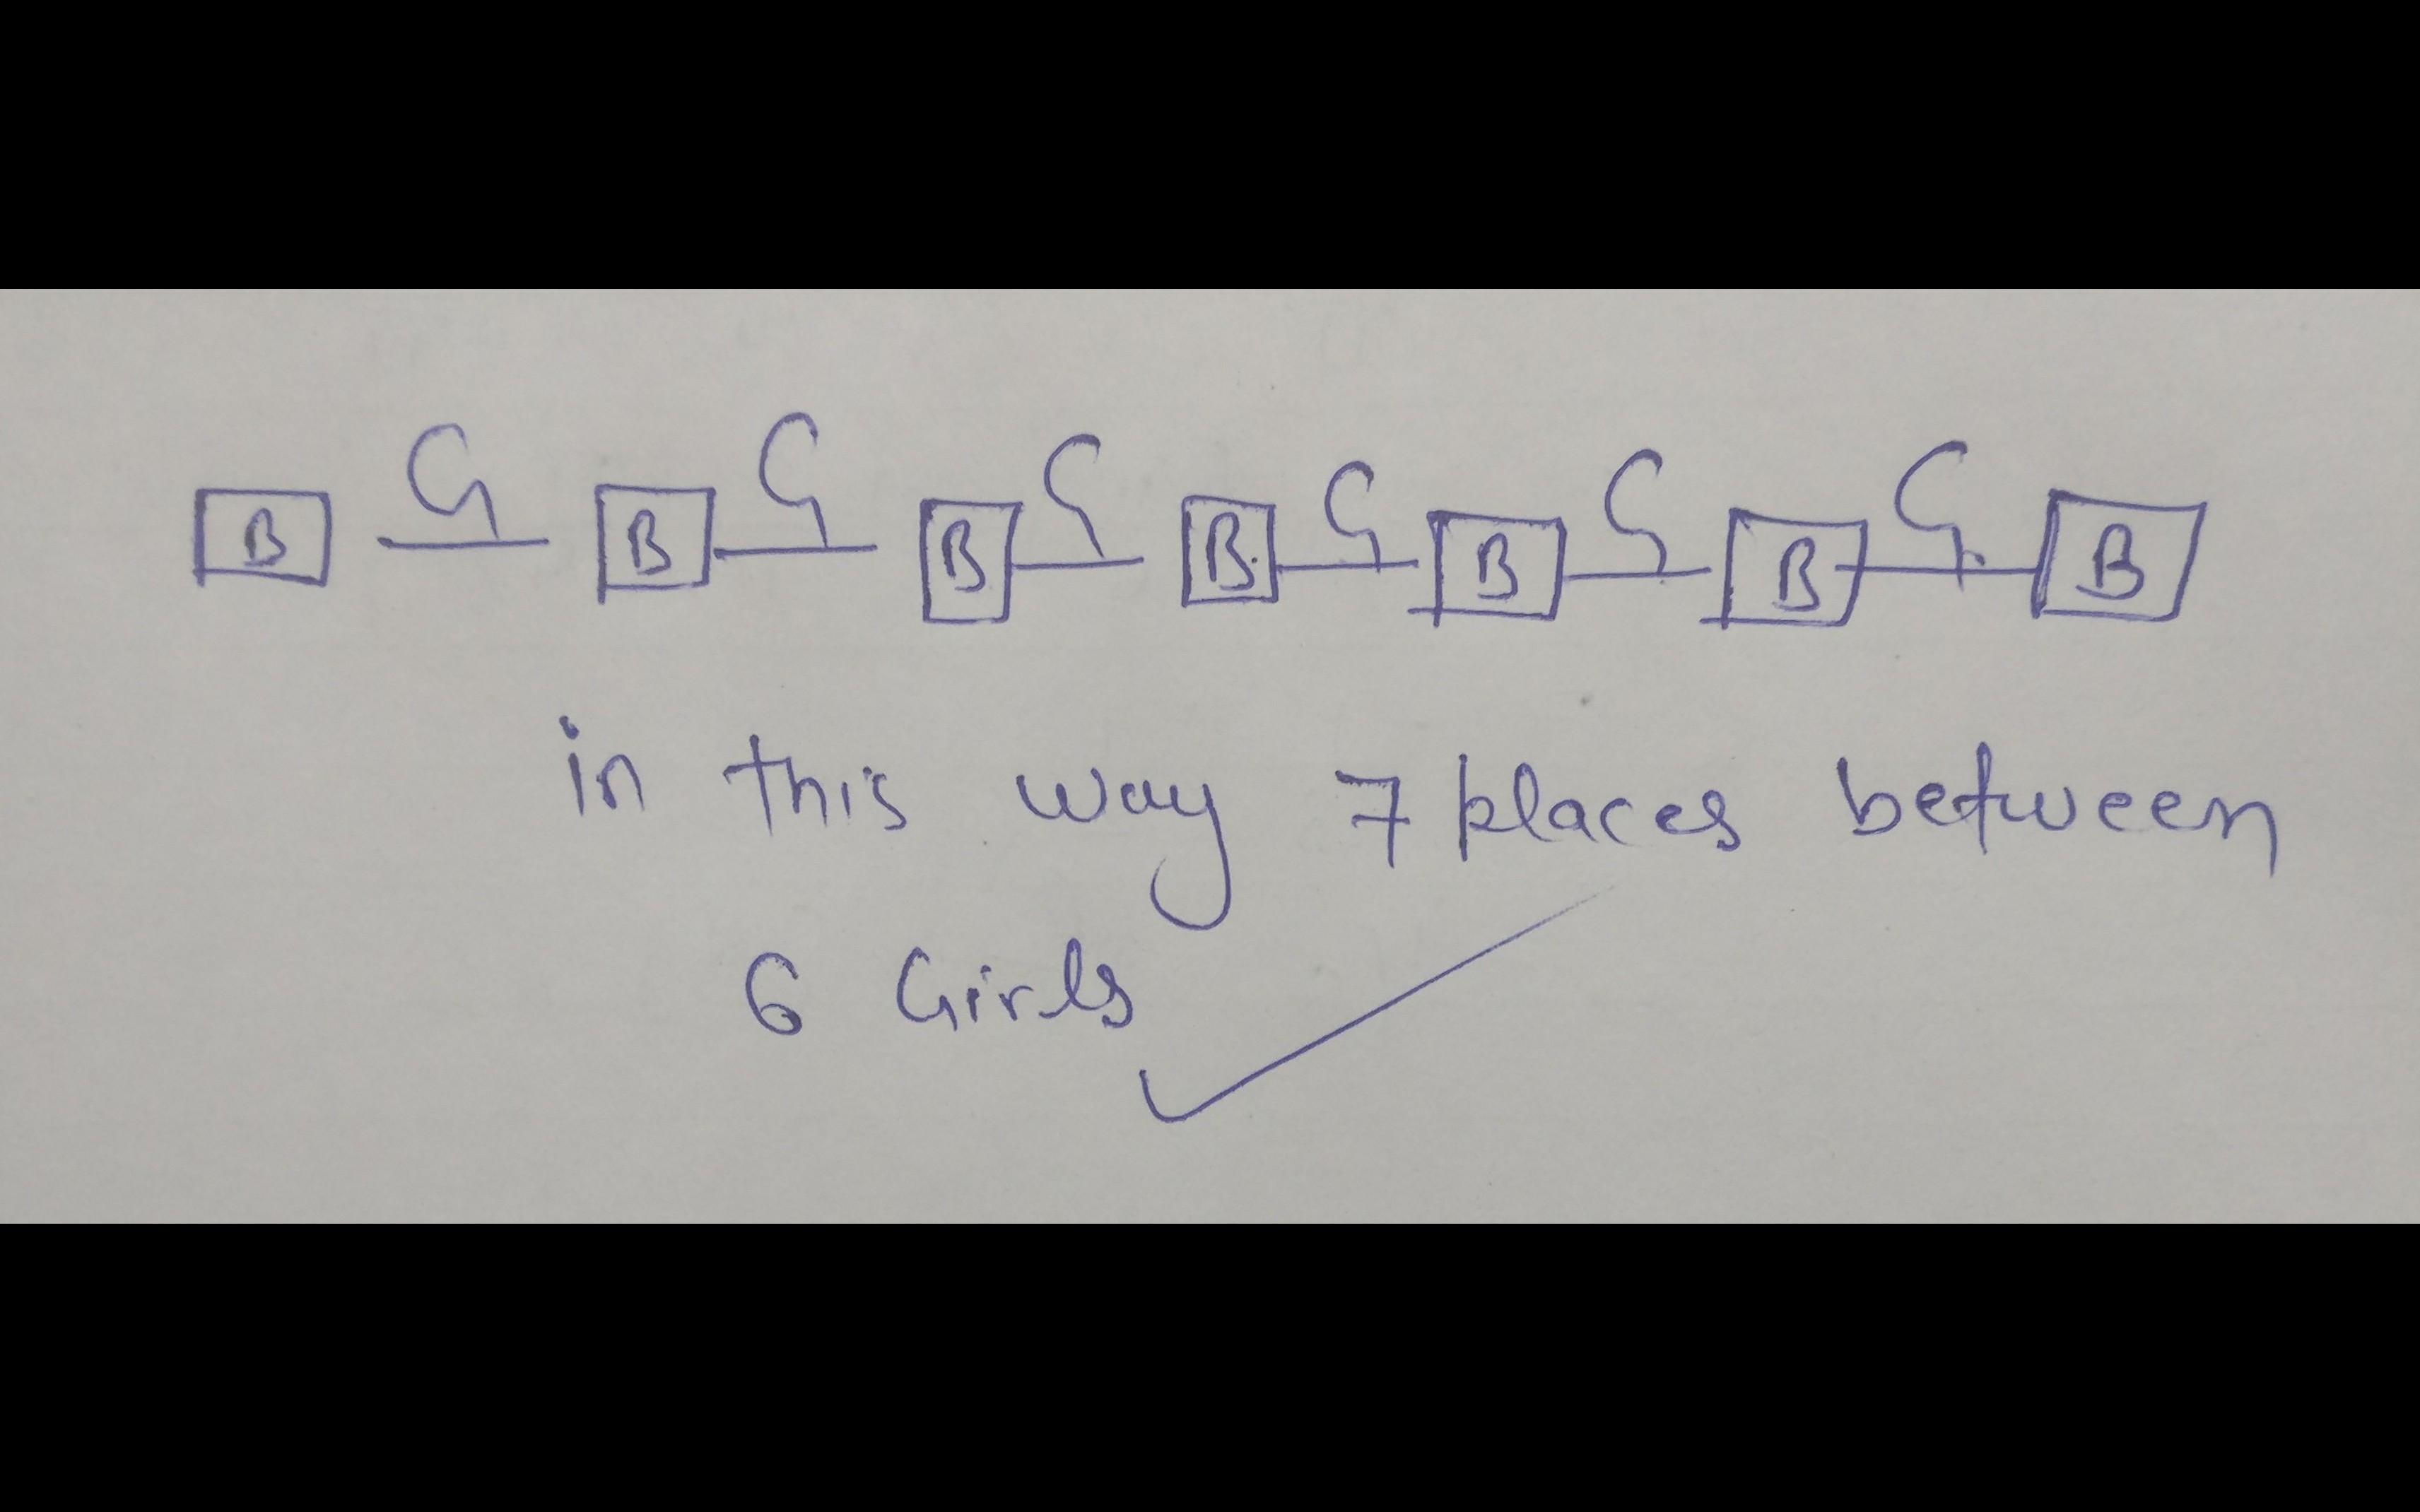 B G B G B G B G B G B G B
in this way 7 places between
6 Girls